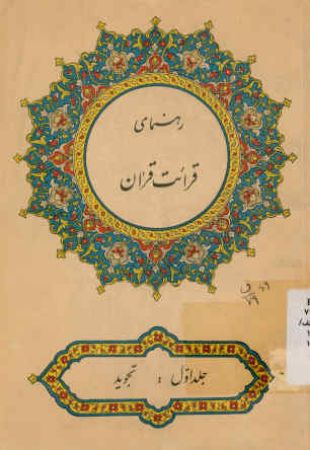 رهنمای
قرائت قرآن
جلد اوّل : تجوید